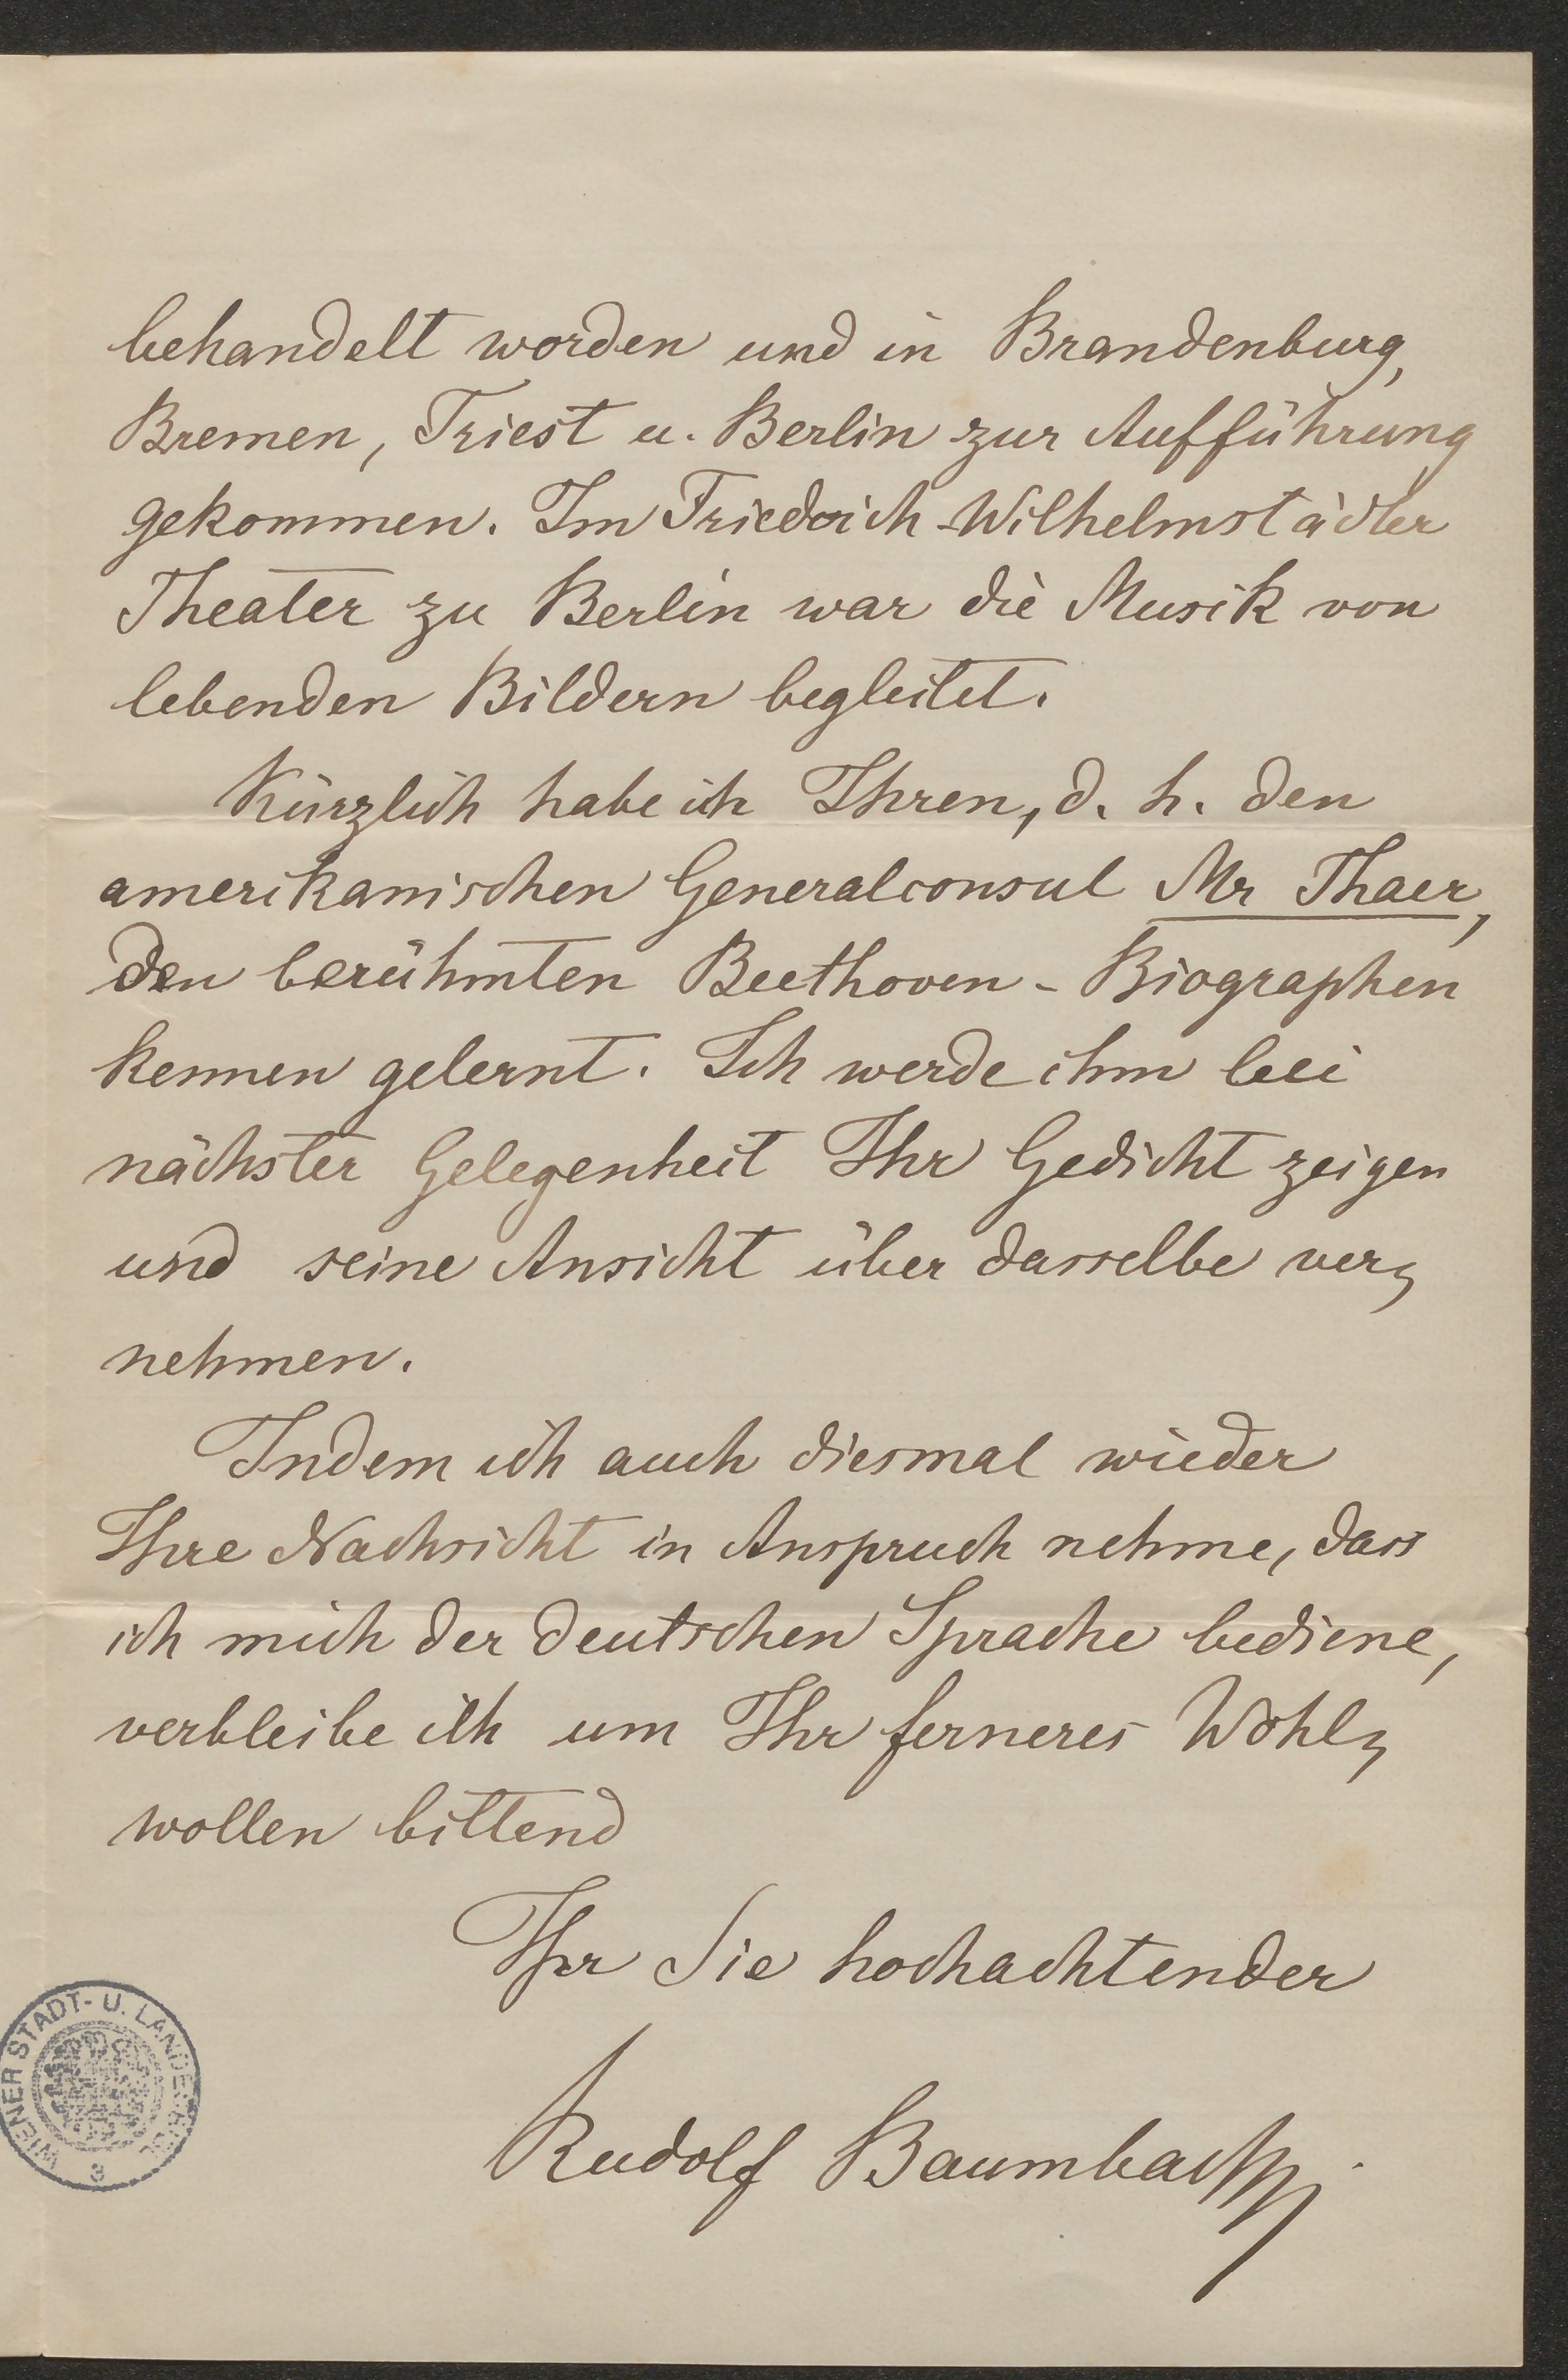 behandelt worden und in Brandenburg,
Bremen, Triest u. Berlin zur Aufführung
gekommen. Im Friedrich-Wilhelmstädter
Theater zu Berlin war die Musik von
lebenden Bildern begleitet.
Kürzlich habe ich Ihren, d. h. den
amerikanischen Generalconsul Mr Thaer,
den berühmten Beethoven-Biographen
kennen gelernt. Ich werde ihm bei
nächster Gelegenheit Ihr Gedicht zeigen
und seine Ansicht über dasselbe ver-
nehmen.
Indem ich auch diesmal wieder
Ihre Nachsicht in Anspruch nehme, dass
ich mich der deutschen Sprache bediene,
verbleibe ich um Ihr ferneres Wohl-
wollen bittend
Ihr Sie hochachtender
Rudolf Baumbach
WIENER STADT- U. LANDES-BIBL.
3